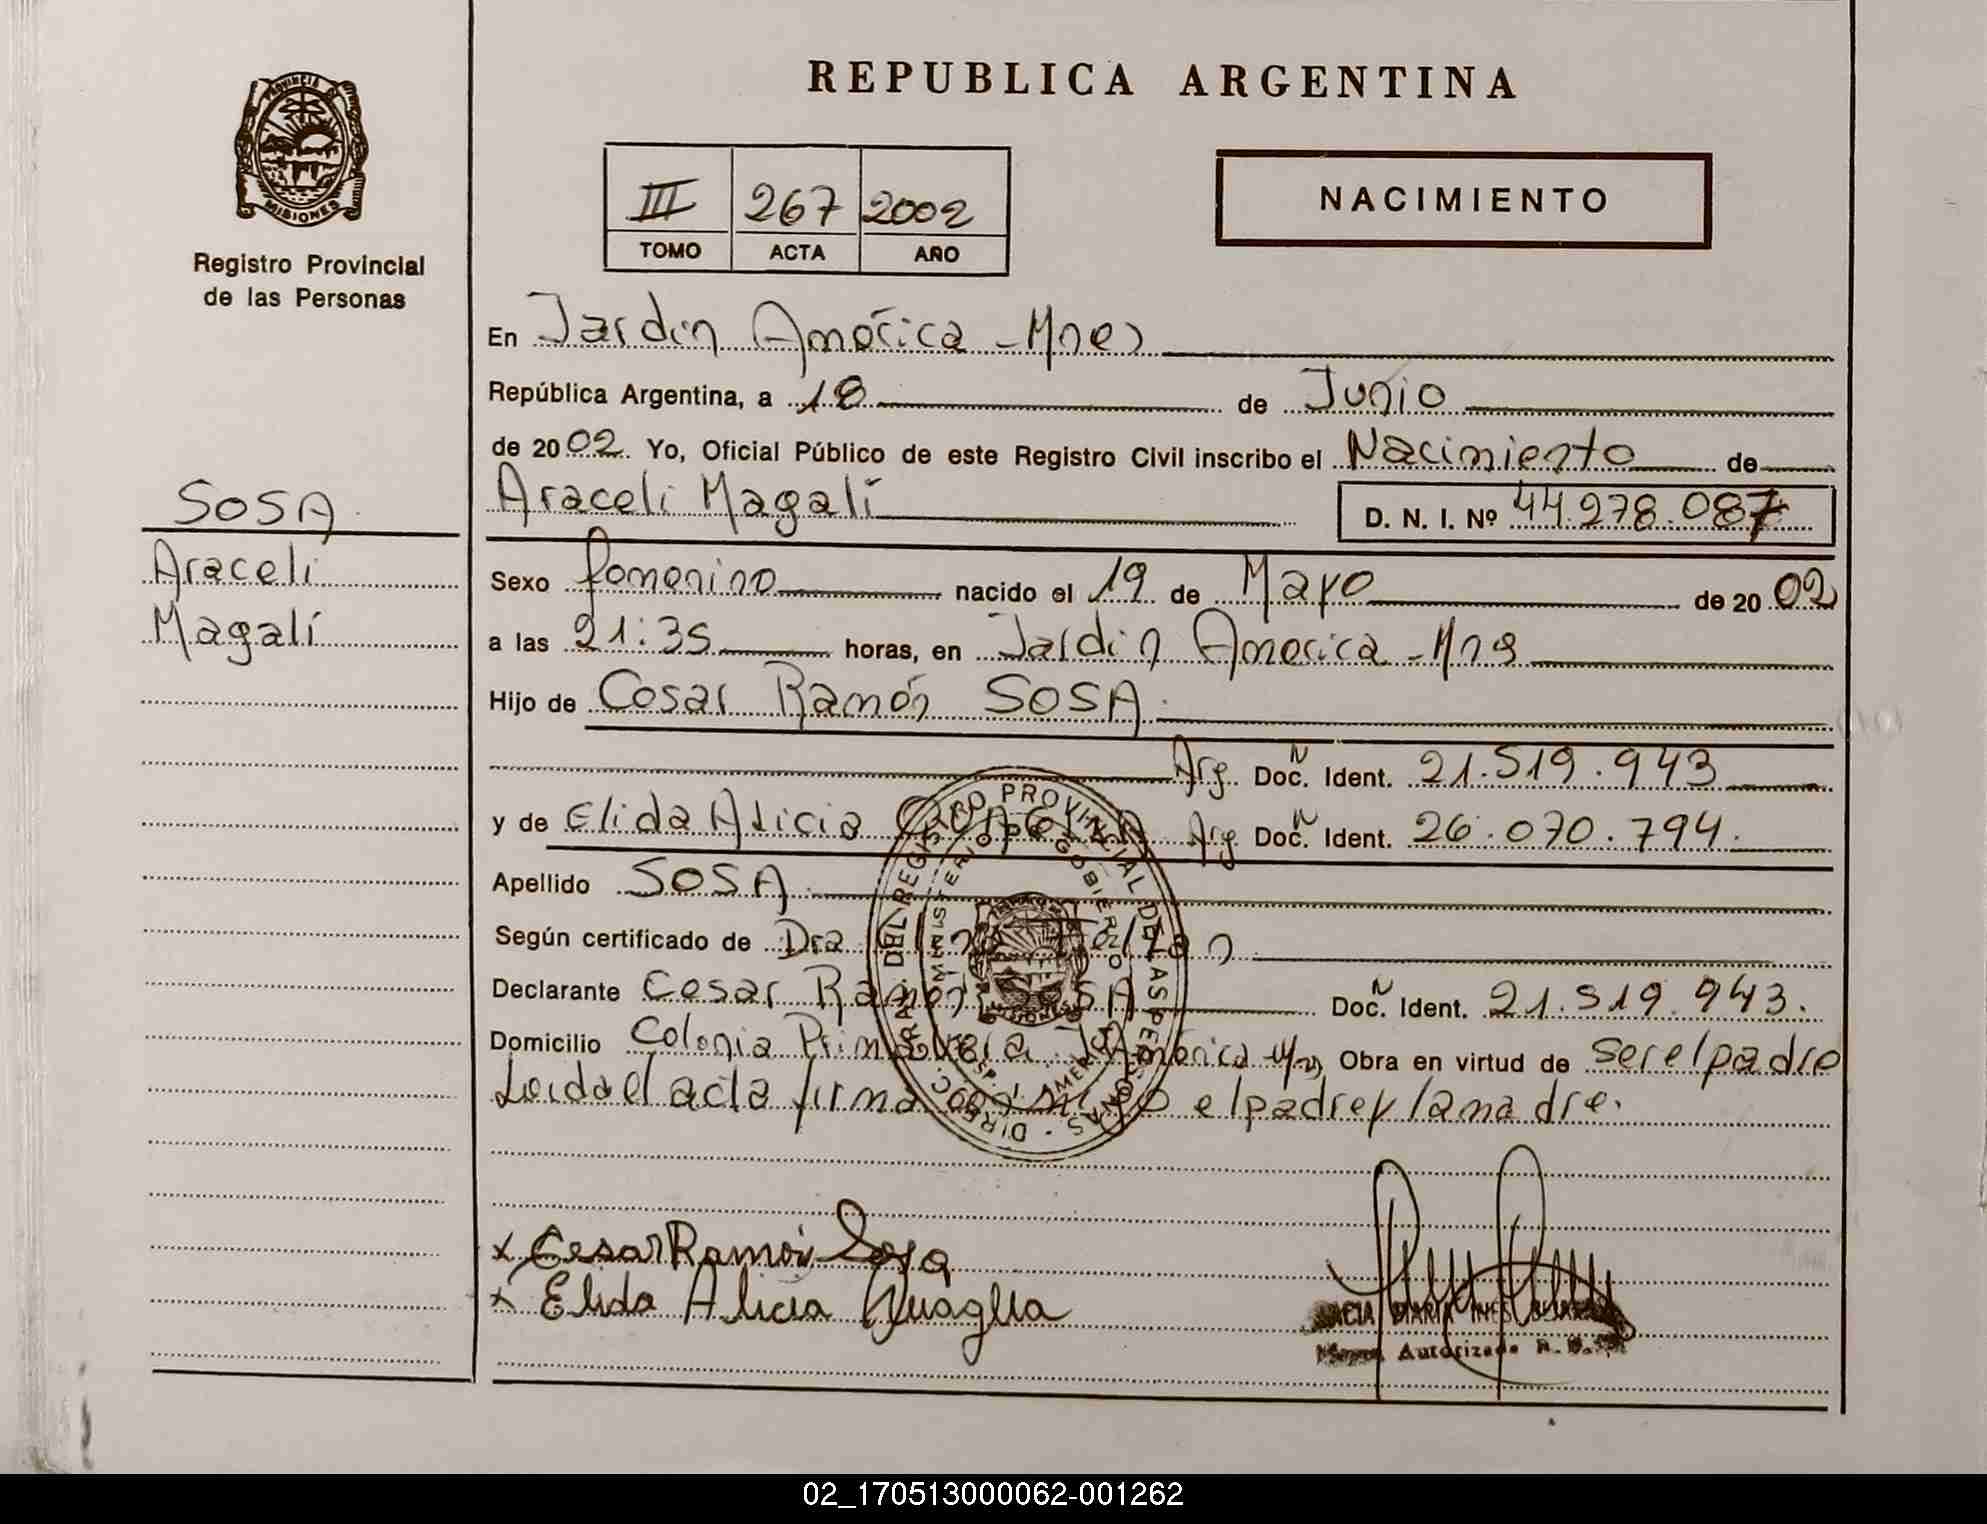 PROVINCIA DE
MISIONES
Registro Provincial
de las Personas
SOSA
Araceli
Magalí
REPUBLICA ARGENTINA
III 267 2002
TOMO ACTA AÑO
NACIMIENTO
En Jardín América - Mnes
República Argentina, a 18 de Junio
de 2002. Yo, Oficial Público de este Registro Civil inscribo el Nacimiento de
Araceli Magalí D. N. I. Nº 44.278.087
Sexo femenino nacido el 19 de Mayo de 2002
a las 21:35 horas, en Jardín América - Mns
Hijo de Cesar Ramón SOSA
Arg. Doc. N Ident. 21.519.943
y de Elida Alicia Arg. Doc. N Ident. 26.070.794.
Apellido SOSA
Según certificado de Dra
Declarante Cesar Ramón SOSA Doc. N Ident. 21.519.943.
Domicilio Colonia Primavera J. América Obra en virtud de ser el padre
Leida el acta firma conmigo el padre y la madre.
DIREC. GRAL. DEL REGISTRO PROVINCIAL DE LAS PERSONAS
MINISTERIO DE GOBIERNO
x Cesar Ramón Sosa
x Elida Alicia Quaglia
MARIA INES
Autorizada
02_170513000062-001262